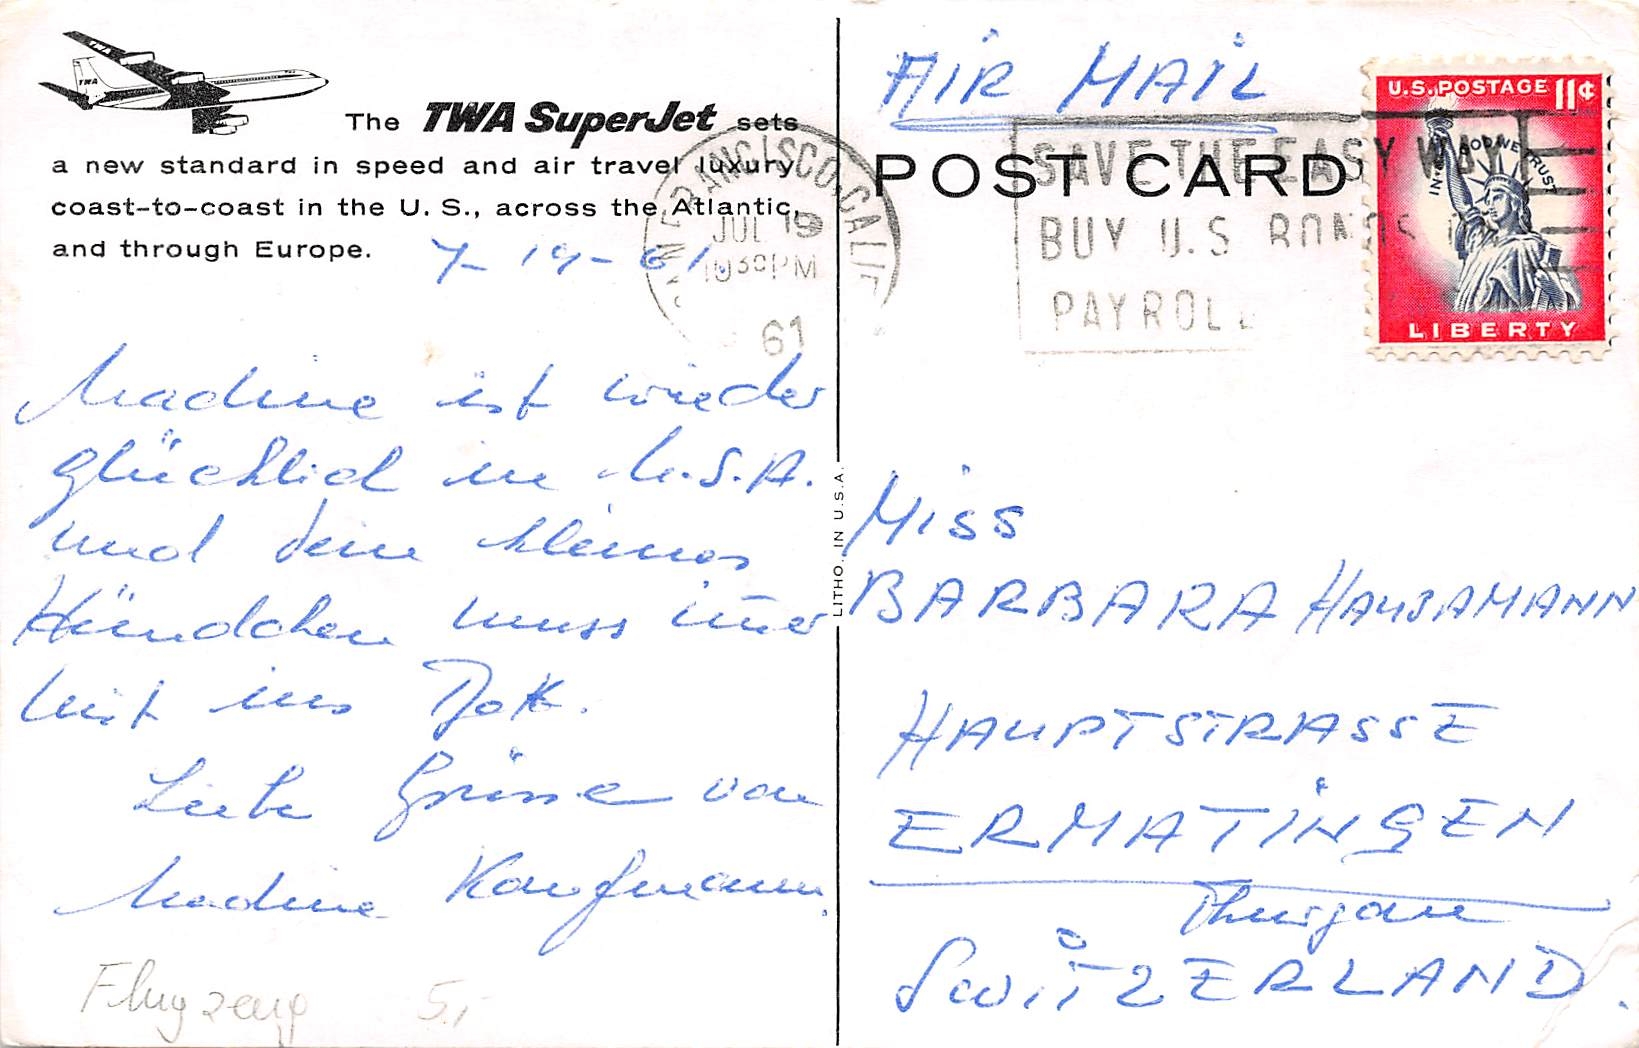 TWA
TWA
The TWA SuperJet sets
a new standard in speed and air travel luxury
coast-to-coast in the U. S., across the Atlantic,
and through Europe.
7-19-61.
Nadine ist wieder
glücklich in U.S.A.
und dein kleines
Hündchen muss im̄er
mit ins Bett.
Liebe Grüsse von
Nadine Kaufmann.
Flugzeug 5.-
FRANCISCO, CALIF
JUL 19
1030PM
61
LITHO. IN U.S.A.
AIR MAIL
POST CARD
SAVE THE EASY WAY
BUY U.S BONDS
PAYROLL
U.S. POSTAGE 11¢
IN GOD WE TRUST
LIBERTY
Miss
BARBARA
HAUPTSTRASSE
ERMATINGEN
Thurgau
SWITZERLAND.